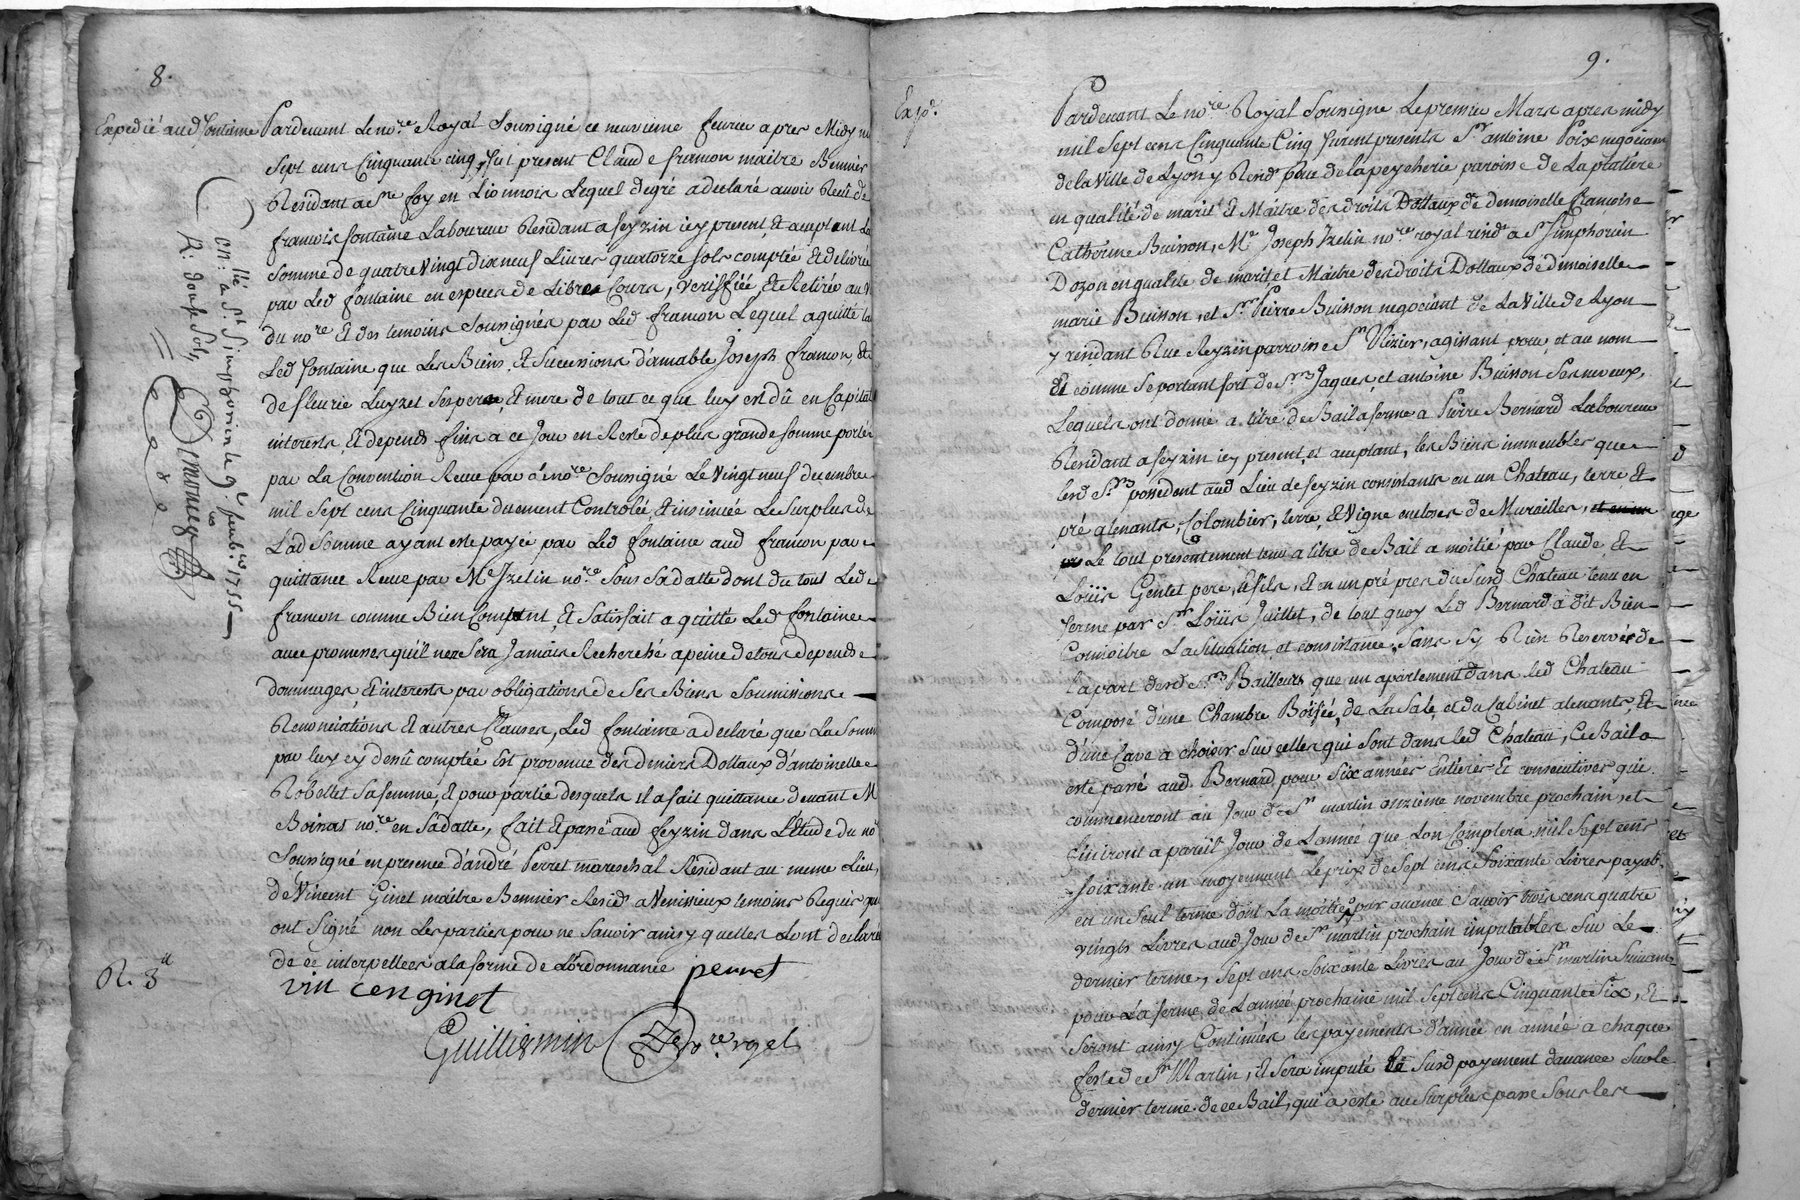 8.
Expedié aud fontaine
Pardevant Le no.re Royal Sousigné ce neuvieme fevrier apres Midy mil
Sept cens Cinquante cinq, fut present Claude francon maitre Bennier
Residant a S.te foy en Lionnois Lequel de gré a declaré avoir Receû de
francois fontaine Laboureur Residant a feyzin icy present, et acceptant La
Somme de quatre vingt dix neuf Livres quatorze sols comptée et delivrée
par Led fontaine en especes de Libre Cours, veriffiée, et Retirée au V.
du no.re et des temoins Sousignés par Led francon Lequel a quitté ta
Led fontaine que Les Biens, et Successions d'amable Joseph francon, et
de fleurie Luyzet Ses pere, et mere de tout ce qui luy est dû en Capital
interests, et depends fins a ce Jour en Reste de plus grande somme portée
par La Convention Receue par le no.re Sousigné Le Vingt neuf decembre
mil Sept cens Cinquante duement Controlée, et insinuée Le Surplus de
Lad Somme ayant esté payée par Led fontaine aud francon par
quittance Receue par M.e Izelin no.re Sous Sa datte dont du tout Led
francon comme Bien Comptent, et Satisfait a quitté Led fontaine
avec promesses qu'il n'en Sera Jamais Recherché a peine de tous depends
dommages, et interests par obligations de Ses Biens Soumissions
Renonciations et autres Clauses, Led fontaine a declaré que La Somme
par luy cy dessû comptée Est provenue des deniers Dottaux d'antoinette
Robellet Sa femme, et pour partie desquels il a fait quittance devant M
Boiras no.re en Sa datte, fait et passé aud feyzin dans L'Etude du no.re
Sousigné en presence d'andré Perret marechal Residant au meme Lieu,
de Vincent Ginet maitre Bennier Resid a Venissieux temoins Requis qui
ont Signé non Les parties pour ne Sçavoir ainsy quelles L'ont declaré
de ce interpellées a la forme de L'ordonnance perret
vin cen ginet
Guilliermin no.re royal
R. 3
on.llé a S.t Simphorien le 9.e feub.er 1755
R: douse Sols
9.
Exp.é
Pardevant Le no.re Royal Sousigné Le premier Mars apres midy
mil Sept cens Cinquante Cinq furent presents S.r antoine Poix negociant
de la Ville de Lyon y Resid.t Rue de la peycherie paroisse de La platiere
en qualité de marit, et Maitre des droits Dottaux de demoiselle francoise
Catherine Buisson, M.e Joseph Izelin no.re royal resid.t a S.t Simphorien
Dozon en qualité de marit, et Maitre des droits Dottaux de demoiselle
marie Buisson, et S.r Pierre Buisson negociant de La Ville de Lyon
y residant Rue Reyzin parroisse S.t Nizier, agissant pour, et au nom
et comme Se portant fort de S.rs Jaques, et antoine Buisson Ses neveux,
Lequels ont donné a titre de Bail a ferme a Pierre Bernard Laboureur
Residant a feyzin icy present, et acceptant, les Biens immeubles que
lesd S.rs possedent aud Lieu de feyzin consistants en un Chateau, terre et
pré atenants, Colombier, terre, et Vigne encloses de Murailles,
Le tout presentement tenu a titre de Bail a moitié par Claude, et
Loüis Gentet pere, et fils, et en un pré pres du Susd Chateau tenu en
ferme par S.r Loüis Juillet, de tout quoy Led Bernard a dit Bien
Connoitre La Situation, et consistance, Sans Sy Rien Reservér de
la part desd S.rs Bailleurs que un apartement dans led Chateau
Composé d'une Chambre Boisée, de La Sale, et du Cabinet atenants, et
d'une Cave a choisir Sur celles qui Sont dans led Chateau, Ce Bail a
esté passé aud Bernard pour Six années Entieres et consecutives qui
commenceront au Jour de S.t martin onzieme novembre prochain, et
finiront a pareil Jour de L'année que L'on Comptera mil Sept cens
soixante un moyennant Le prix de Sept cens Soixante Livres payab.
en un Seul terme dont La moitié par avance Sçavoir trois cens quatre
vingts Livres aud Jour de S.t martin prochain imputables Sur Le
dernier terme, Sept cens Soixante Livres au Jour de S.t martin Suivant
pour La ferme de L'année prochaine mil Sept cens Cinquante Six, et
Seront ainsy Continués les payements d'année en année a chaque
feste de S.t Martin, et Sera imputé Le Susd payement d'avance Sur le
dernier terme de ce Bail, qui a esté au Surplus passé Sous les